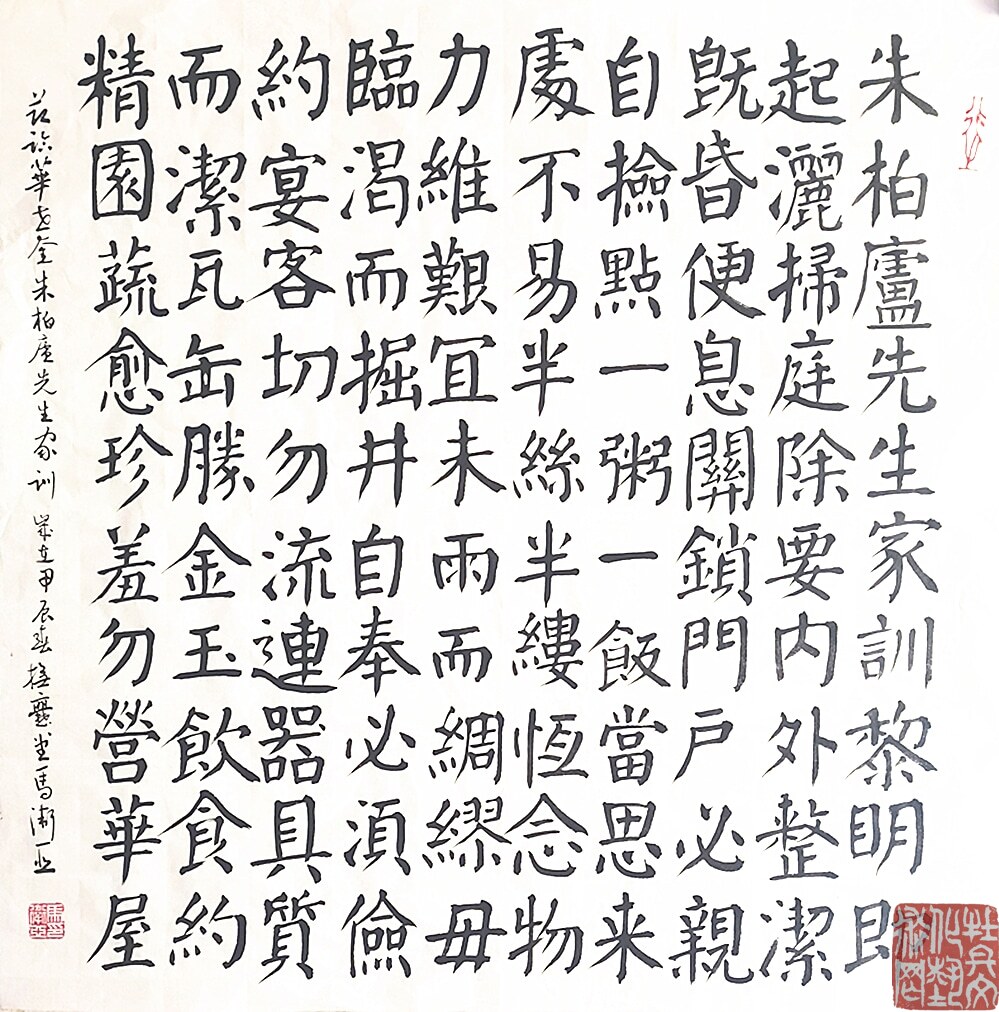 朱柏廬先生家訓黎明即
起灑掃庭除要内外整潔
既昏便息關鎖門戶必親
自撿點一粥一飯當思来
處不易半絲半縷恆念物
力維艱冝未雨而綢繆毋
臨渴而掘井自奉必湏儉
約宴客切勿流連器具質
而潔瓦缶勝金玉飲食約
精園蔬愈珍羞勿營華屋
臨華世奎朱柏廬先生家训 歲在甲辰春